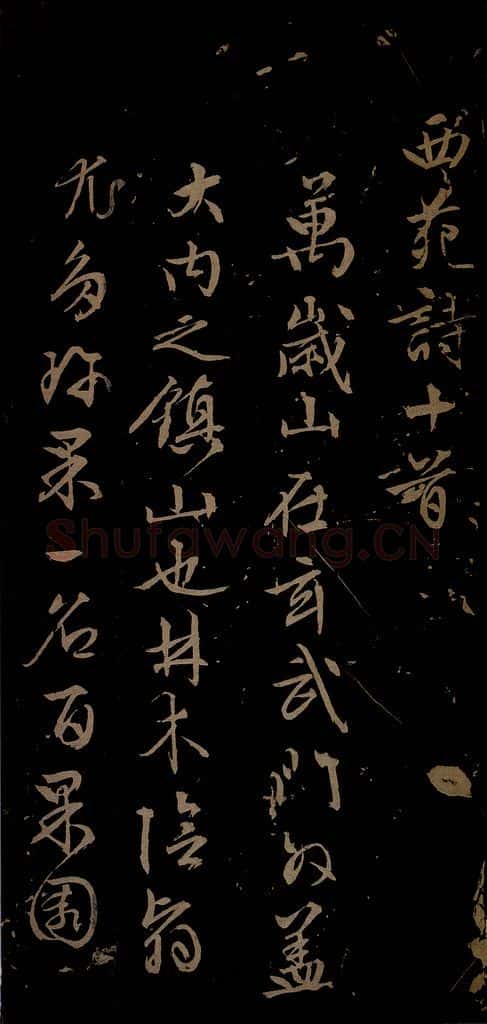 西苑詩十首
萬歲山在玄武門外蓋
大内之鎮山也林木陰翳
尤多珍果一名百果園
Shufawang.CN